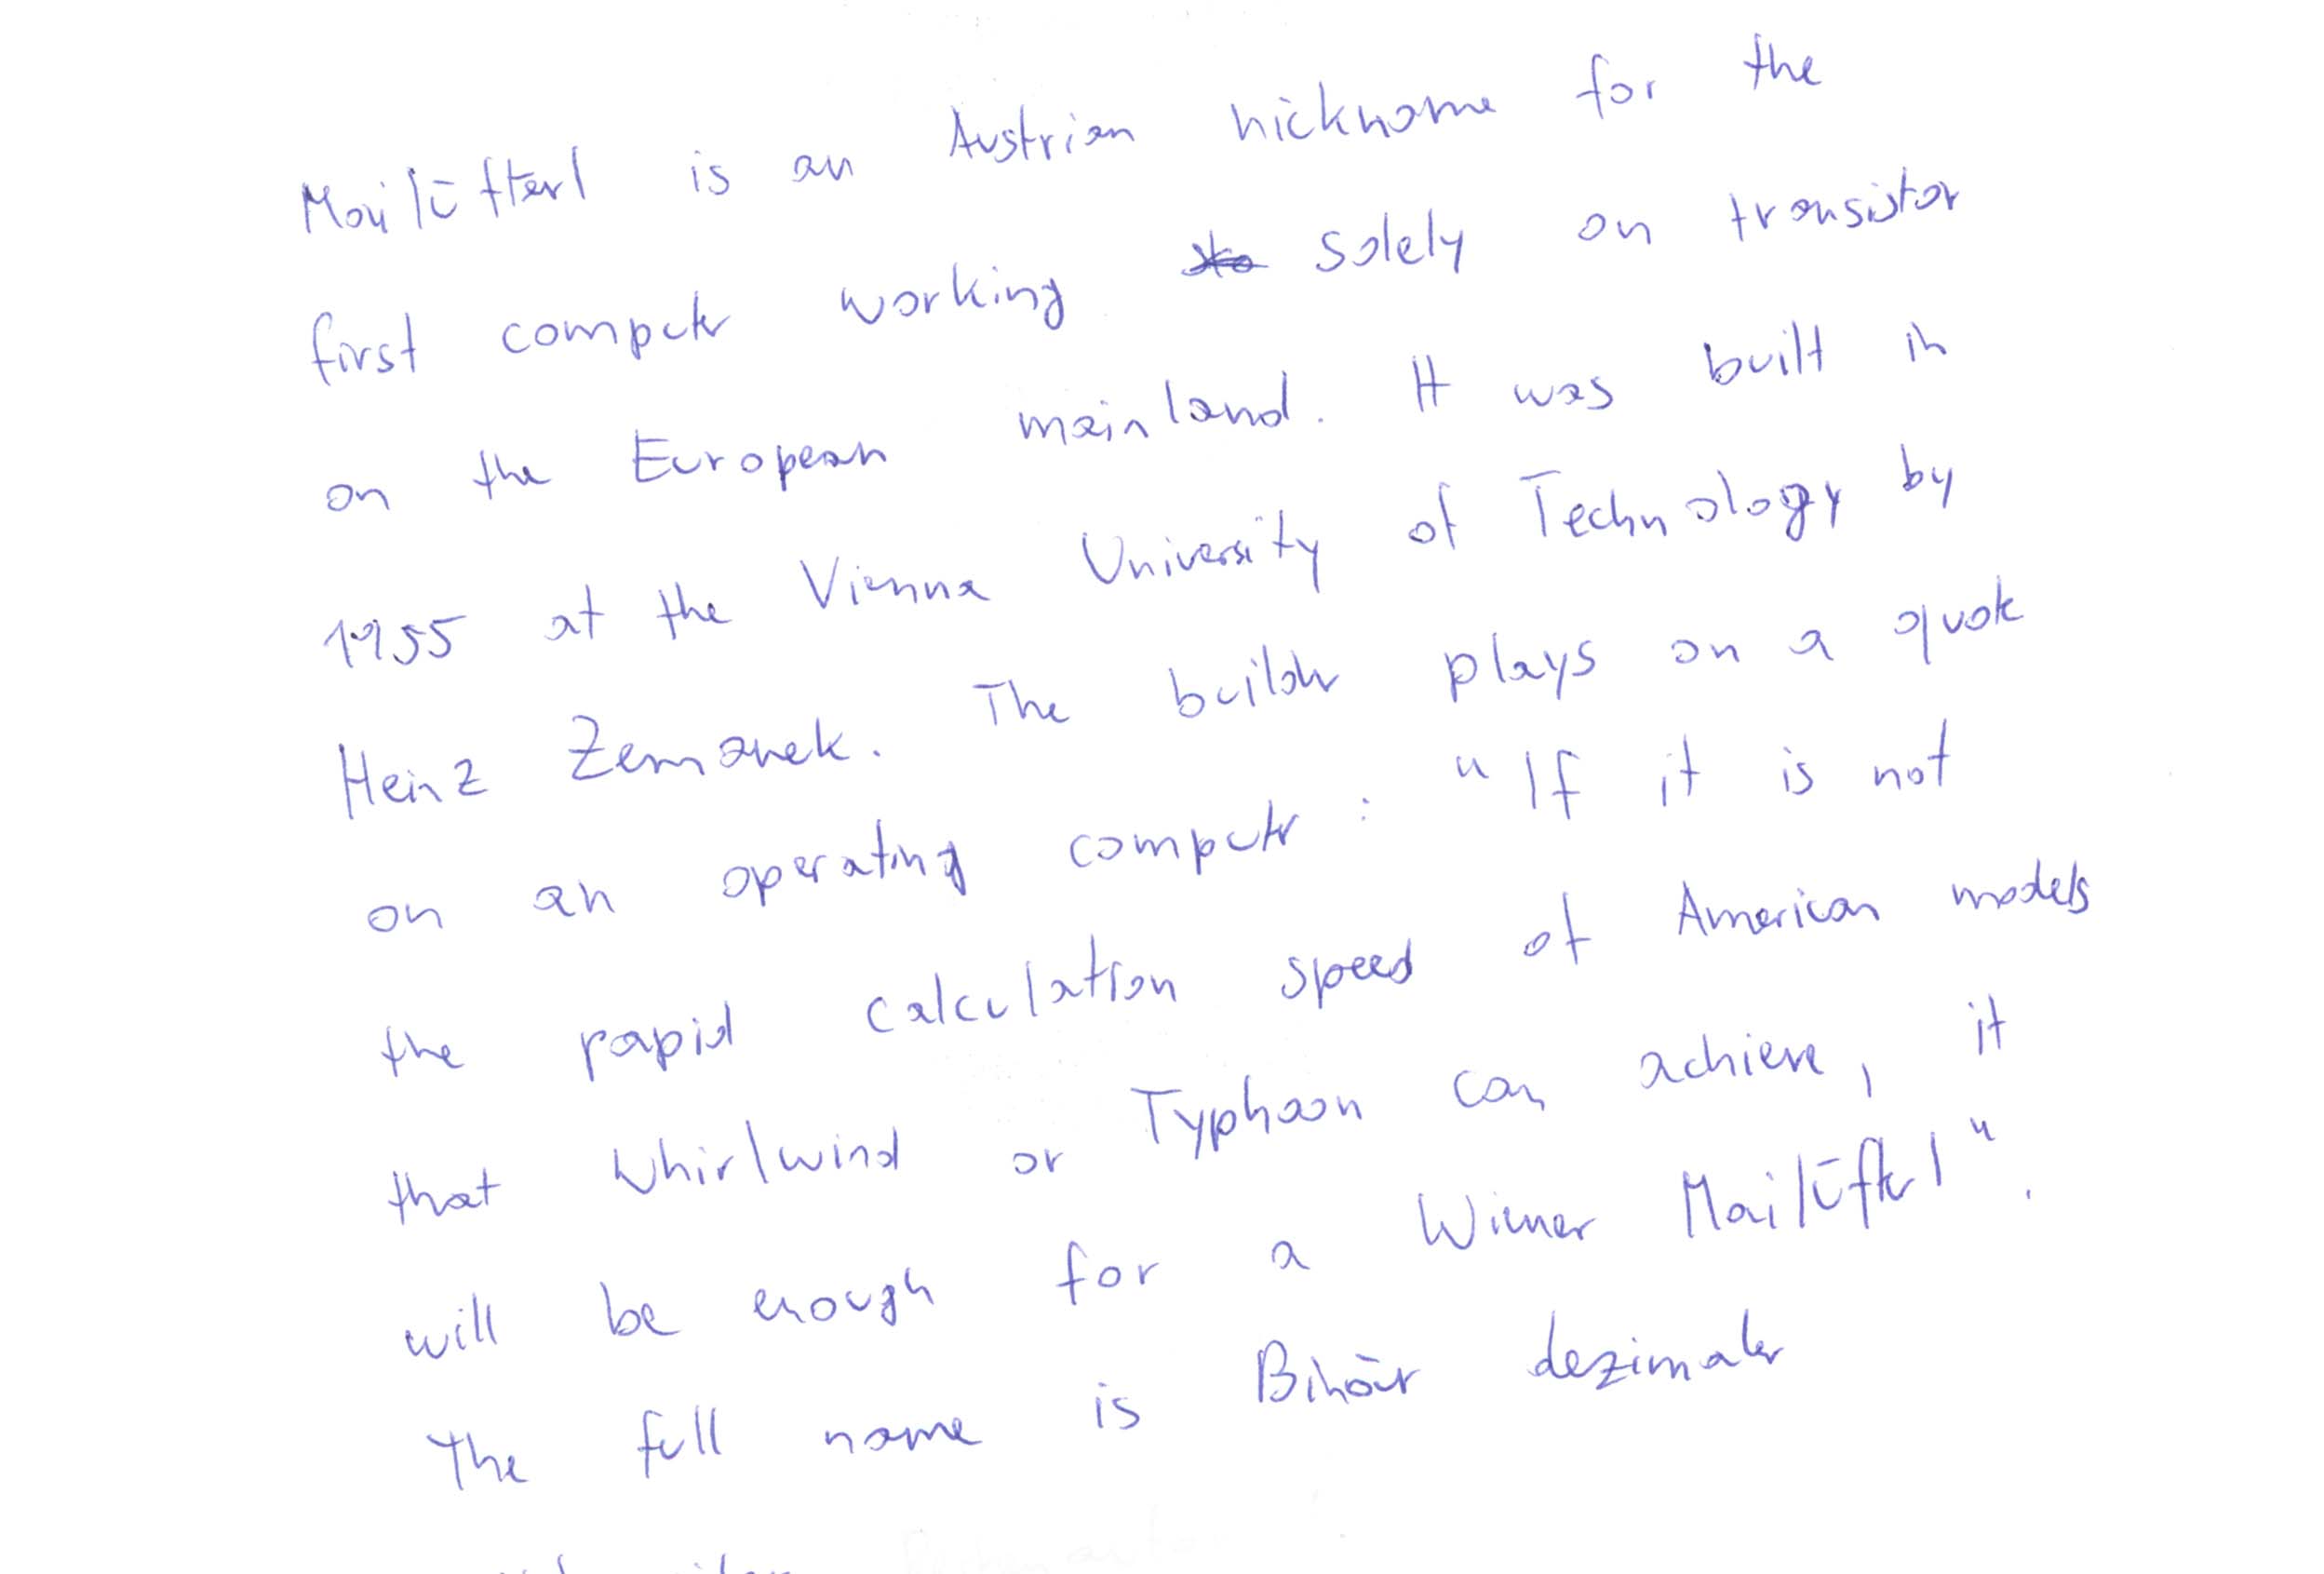 Mailüfterl is an Austrian nickname for the
first computer working solely on transistor
on the European mainland. It was built in
1955 at the Vienna University of Technology by
Heinz Zemanek. The builder plays on a quote
on an operating computer: "If it is not
the rapid calculation speed of American models
that Whirlwind or Typhoon can achieve, it
will be enough for a Wiener Mailüfterl".
The full name is Binär dezimaler